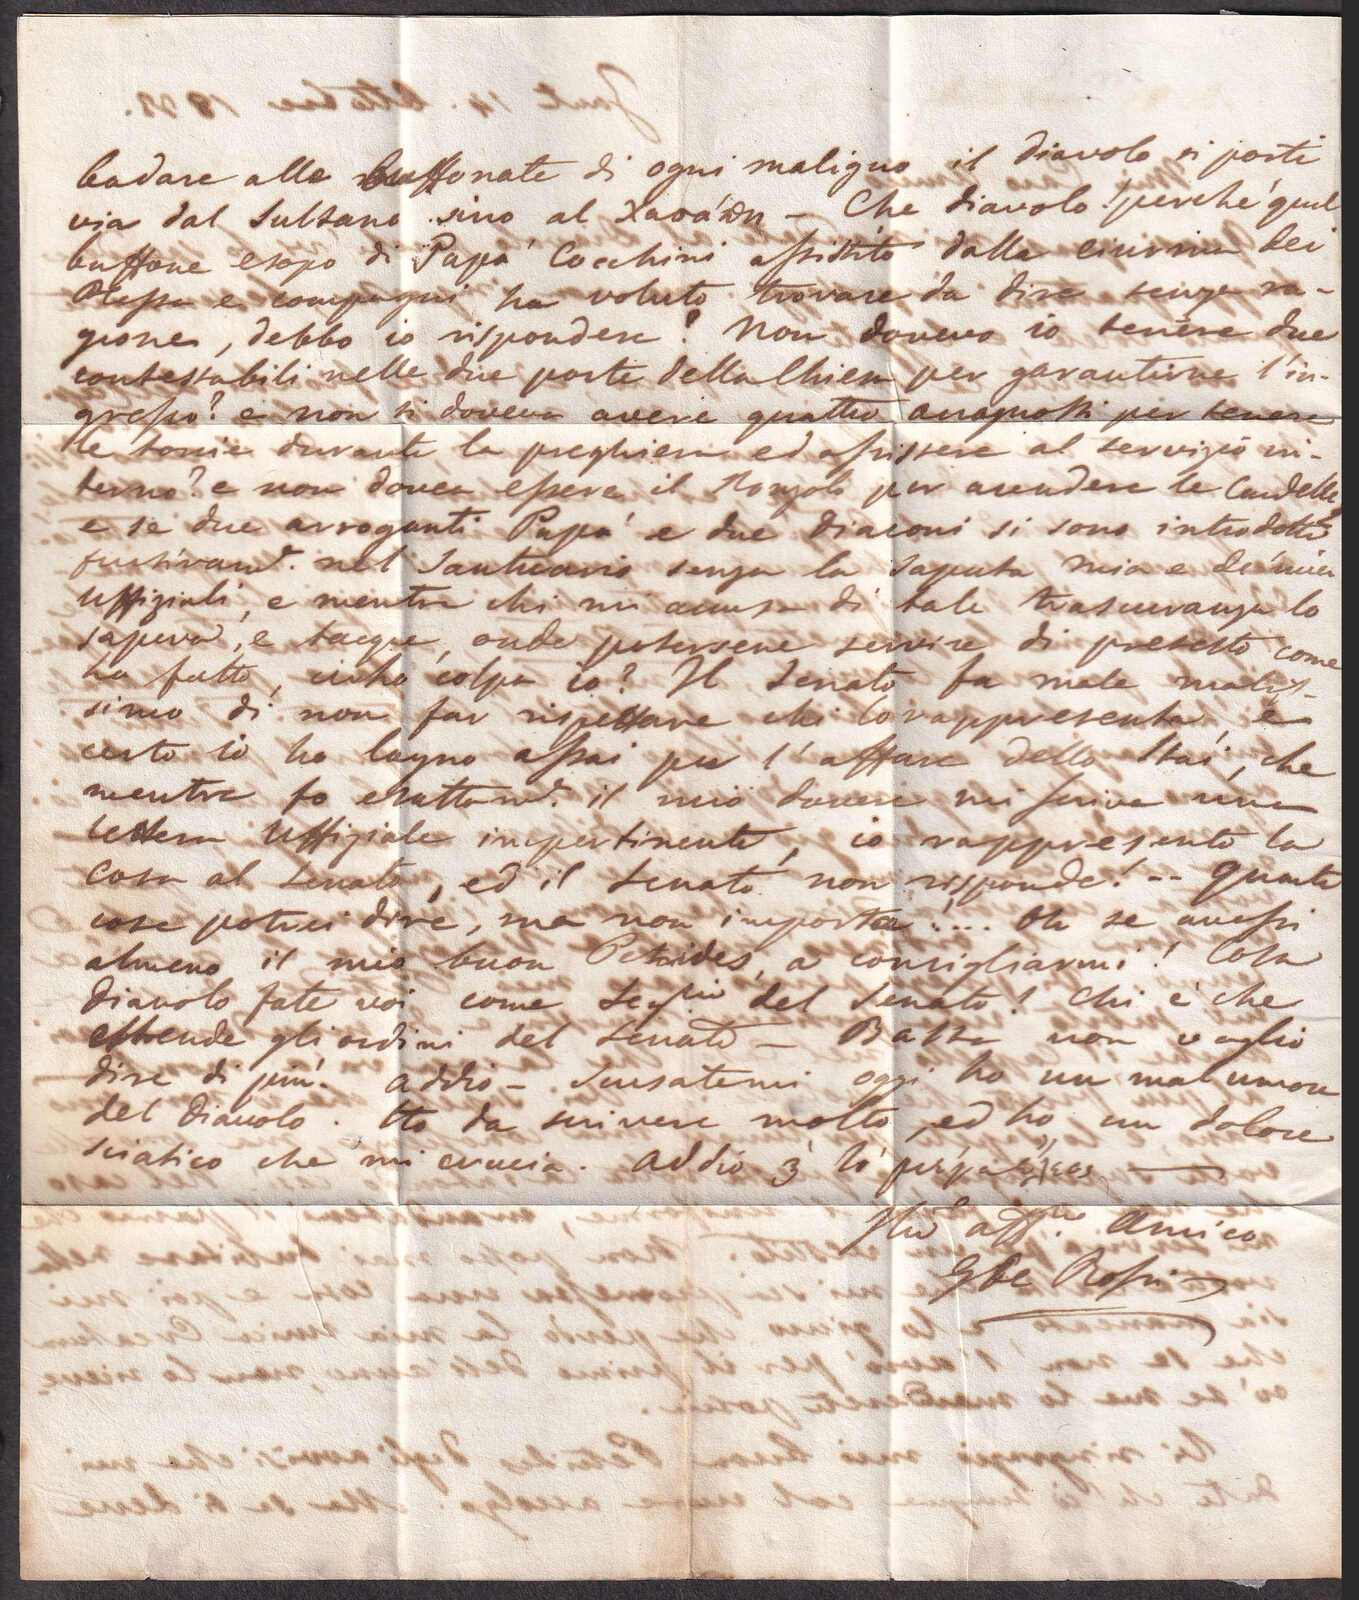 badare alle buffonate di ogni maligno il diavolo si porti
via dal Sultano sino al – Che diavolo! perché quel
buffone esopo di Papà Cocchini assistito dalla ciurma dei
Plessa e compagni ha voluto trovare da dire senza ra-
gione, debbo io rispondere? Non dovevo io tenere due
contestabili nelle due porte della Chiesa per garantirne l'in-
gresso? e non si doveva avere quattro anagnosti per tenere
le torcie durante la preghiera ed assistere al servizio in-
terno? e non dovea essere il Ronzolo per accendere le Candelle
e se due arroganti Papà e due Diaconi si sono introdotti
furtivamᵉ. nel Santuario senza la saputa mia e de' miei
Uffiziali, e mentre chi mi accusa di tale trascuranza lo
sapeva, e tacque, onde potersene servire di pretesto come
ha fatto, ci ho colpa io? Il Senato fa male malis-
simo di non far rispettare chi lo rappresenta, e
certo io ho lagno assai per l'affare dello Stai, che
mentre fo esattamᵉ. il mio dovere mi scrive una
lettera Uffiziale impertinente, io rappresento la
cosa al Senato, ed il Senato non risponde! -- Quante
cose potrei dire, ma non importa!.... Oh se avessi
almeno il mio buon Petrides, a consigliarmi! Cosa
diavolo fate voi come Segʳⁱᵒ del Senato! Chi è che
estende gli ordini del Senato – Basta non voglio
dire di più. addio – Scusatemi oggi ho un mal umore
del diavolo. Ho da scrivere molto, ed ho un dolore
sciatico che mi crucia. Addio
affᵐᵒ. Amico
Rossi